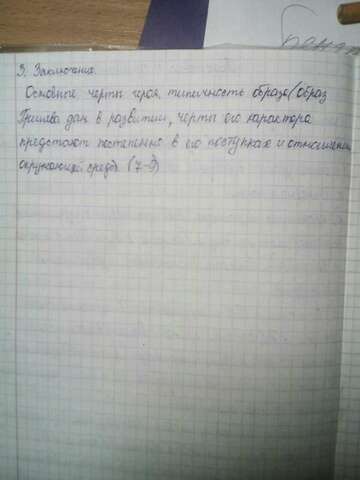 Беня
3. Заключение.
Основные черты героя, типичность образа (образ
Гринёва дан в развитии, черты его характера
предстают постепенно в его поступках и отношении
окружающей среде (7-9)